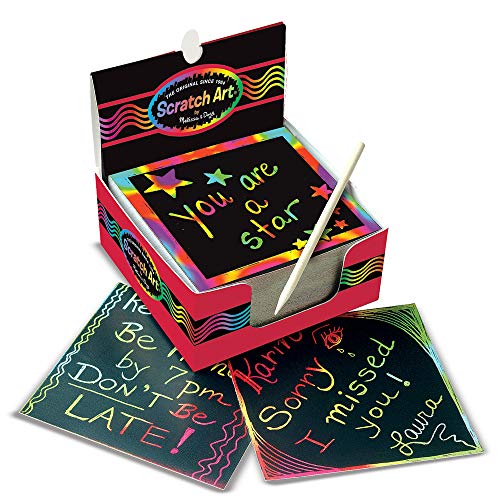 THE ORIGINAL SINCE 1986
Scratch Art
by
Melissa & Doug
you are
a
star
Scratch Art
Be
by 7pm
DON'T Be
LATE!
Karin
Sorry
I missed
you!
Laura